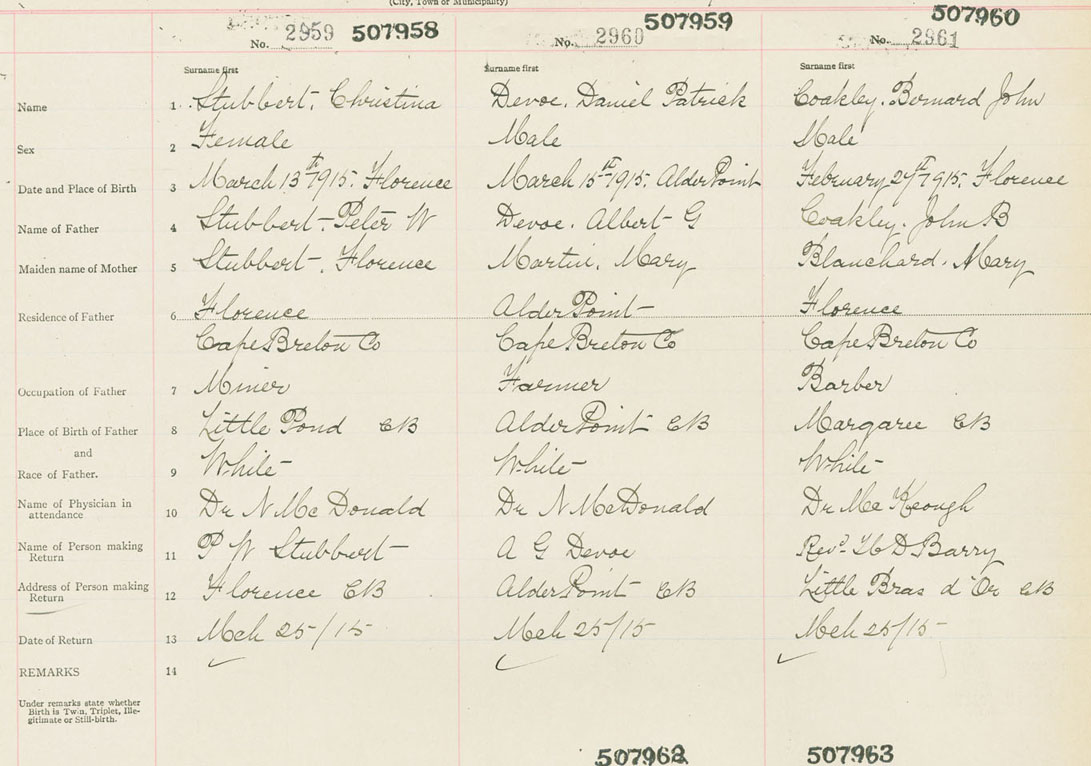 (City, Town or Municipality)
No. 2959 507958
No. 2960 507959
No. 2961 507960
Surname first Surname first Surname first
Name 1 Stubbert, Christina Devoe, Daniel Patrick Coakley, Bernard John
Sex 2 Female Male Male
Date and Place of Birth 3 March 13th 1915, Florence March 15th 1915, Alder Point February 1915, Florence
Name of Father 4 Stubbert, Peter W Devoe, Albert G Coakley, John B
Maiden name of Mother 5 Stubbert, Florence Martin, Mary Blanchard, Mary
Residence of Father 6 Florence Alder Point Florence
Cape Breton Co Cape Breton Co Cape Breton Co
Occupation of Father 7 Miner Farmer Barber
Place of Birth of Father 8 Little Pond CB Alder Point CB Margaree CB
and
Race of Father. 9 White White White
Name of Physician in
attendance 10 Dr N McDonald Dr N McDonald Dr McKeough
Name of Person making
Return 11 P W Stubbert A G Devoe Revd Barry
Address of Person making
Return 12 Florence CB Alder Point CB Little Bras d'Or CB
Date of Return 13 Mch 25/15 Mch 25/15 Mch 25/15
REMARKS 14
Under remarks state whether
Birth is Twin, Triplet, Ille-
gitimate or Still-birth.
507962 507963